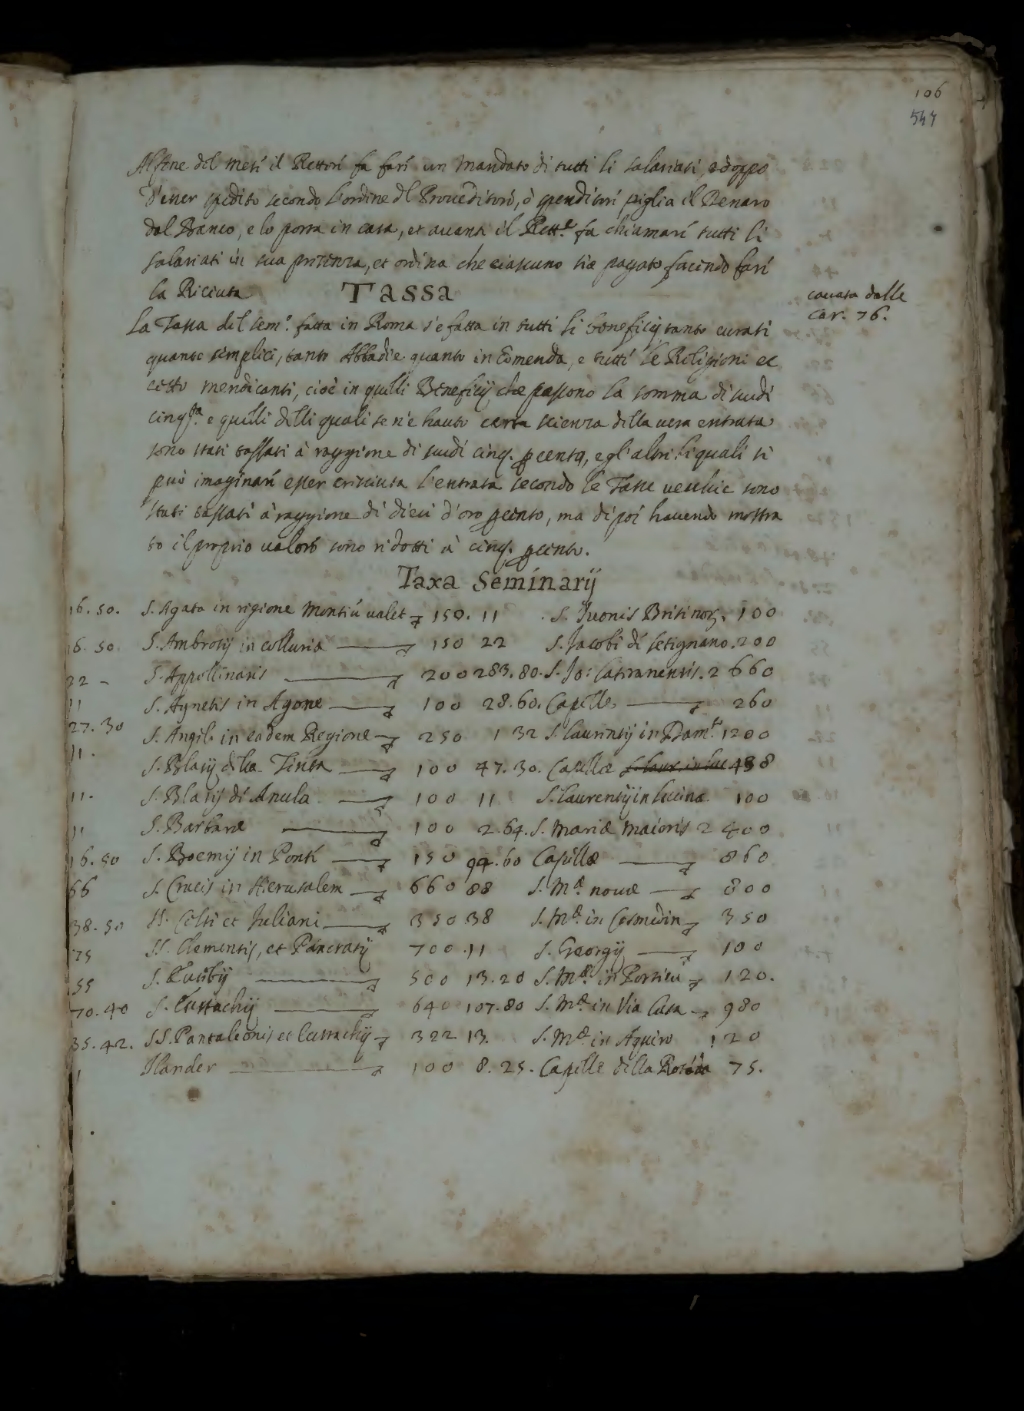 106
547
Al fine del mese il Rettore fa fare un Mandato di tutti li salariati, e doppo
d'esser spedito secondo l'ordine dl Proveditore, ò spenditore piglia il Denaro
dal Banco, e lo porta in casa, et avanti il Rett.e fa chiamare tutti li
salariati in sua presenza, et ordina che ciascuno sia pagato facendo fare
la Riceuta
Tassa
cavata dalle
car. 76.
La Tassa del sem.o fatta in Roma s'è fatta in tutti li beneficij tanto curati
quanto semplici, tanto Abbadie quanto in Comenda, e tutte le Religioni ec
cetto mendicanti, cioè in quelli Beneficij che passono la somma di scudi
cinq.ta e quelli delli quali se n'è hauto certa scienza della vera entrata
sono stati tassati à raggione di scudi cinq. p cento, e gl'altri li quali si
può imaginare esser cresciuta l'entrata secondo le Tasse vecchie sono
stati tassati à raggione di dieci d'oro p cento, ma di poi havendo mostra
to il proprio valore sono ridotti à cinq. p cento.
Taxa Seminarij
16. 50. S. Agata in regione Montiũ valet 150. 11 S. Ivonis Britinor. 100
6. 50. S. Ambrosij in 150 22 S. Jacobi di Setignano. 200
22 - S. Appollinaris 200 283. 80. S. Jo: Lateranensis. 2 660
11 S. Agnetis in Agone 100 28. 60. Capelle 260
27. 30 S. Angeli in eadem Regione 250 132 S. Laurentij in Dam.o 1200
11. S. Blasij della Tinta 100 47. 30. Capellæ 438
11. S. Blasij di Anula 100 11 S. Laurentij in lucina 100
11 S. Barbaræ 100 2.64. S. Mariæ Maioris 2 400
16. 50 S. in Ponte 150 94. 60 Capellæ 860
66 S. Crucis in Hierusalem 660 88 S. M.a novæ 800
38. 50 SS. Celsi et Juliani 350 38 S. M.a in Cosmedin 350
75 SS. Clementis, et Pancratij 700. 11 S. Georgij 100
55 S. Eusebij 500 13. 20 S. M.a in Porticu 120.
70. 40 S. Eustachij 640 107. 80 S. M.a in Via Lata 980
35. 42. SS. Pantaleonis et Eustachij 322 13. S. M.a in Aquiro 120
1 100 8. 25. Capelle della Rotõda 75.